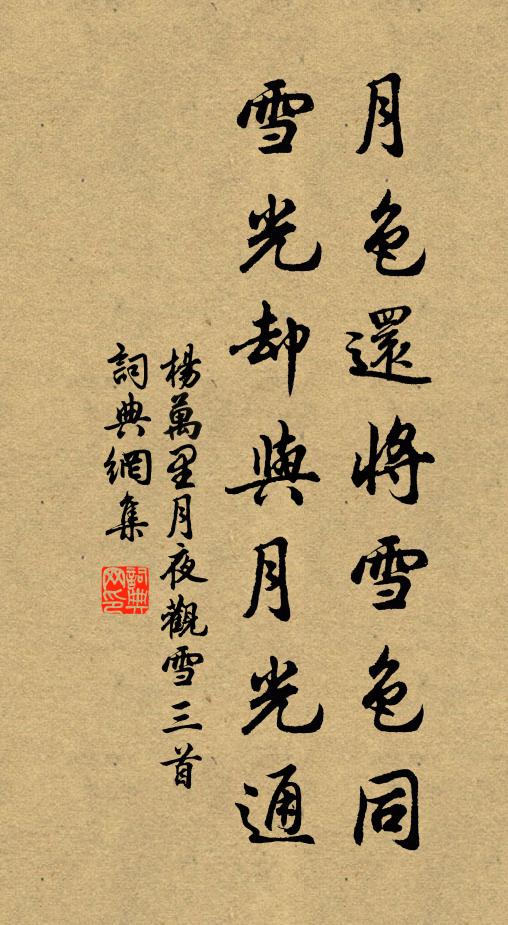 月色還將雪色同
雪光却與月光通
楊萬里月夜觀雪三首
詞典網集
詞典
网印